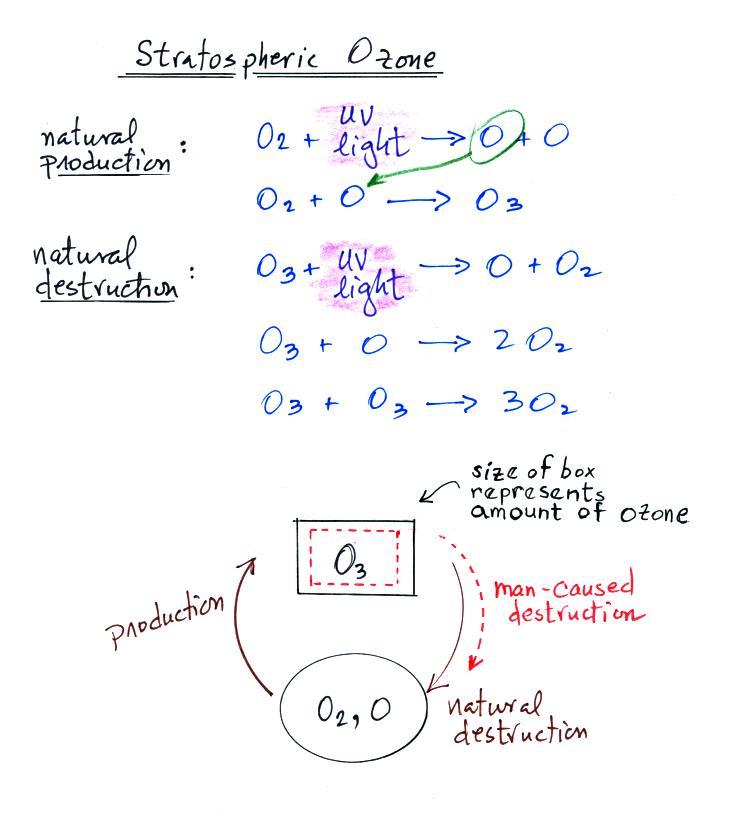 Stratospheric Ozone
natural production : O2 + uv light → O + O
O2 + O → O3
natural destruction : O3 + uv light → O + O2
O3 + O → 2 O2
O3 + O3 → 3O2
size of box
represents
amount of ozone
O3
production
man-caused
destruction
O2, O
natural
destruction